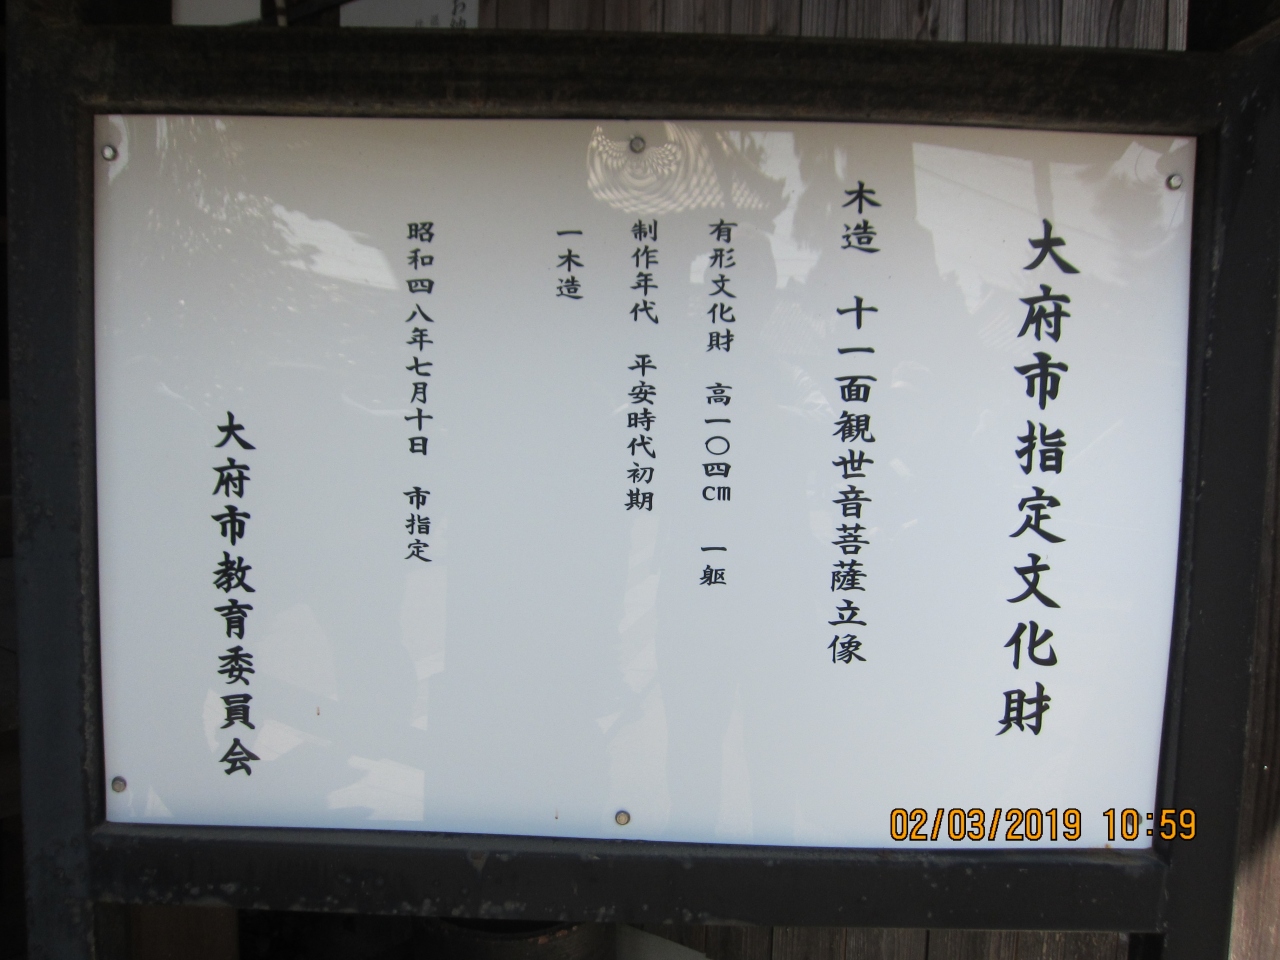 大府市指定文化財
木造　十一面観世音菩薩立像
有形文化財　高一〇四cm　一躯
制作年代　平安時代初期
一木造
昭和四八年七月十日　市指定
大府市教育委員会
02/03/2019 10:59